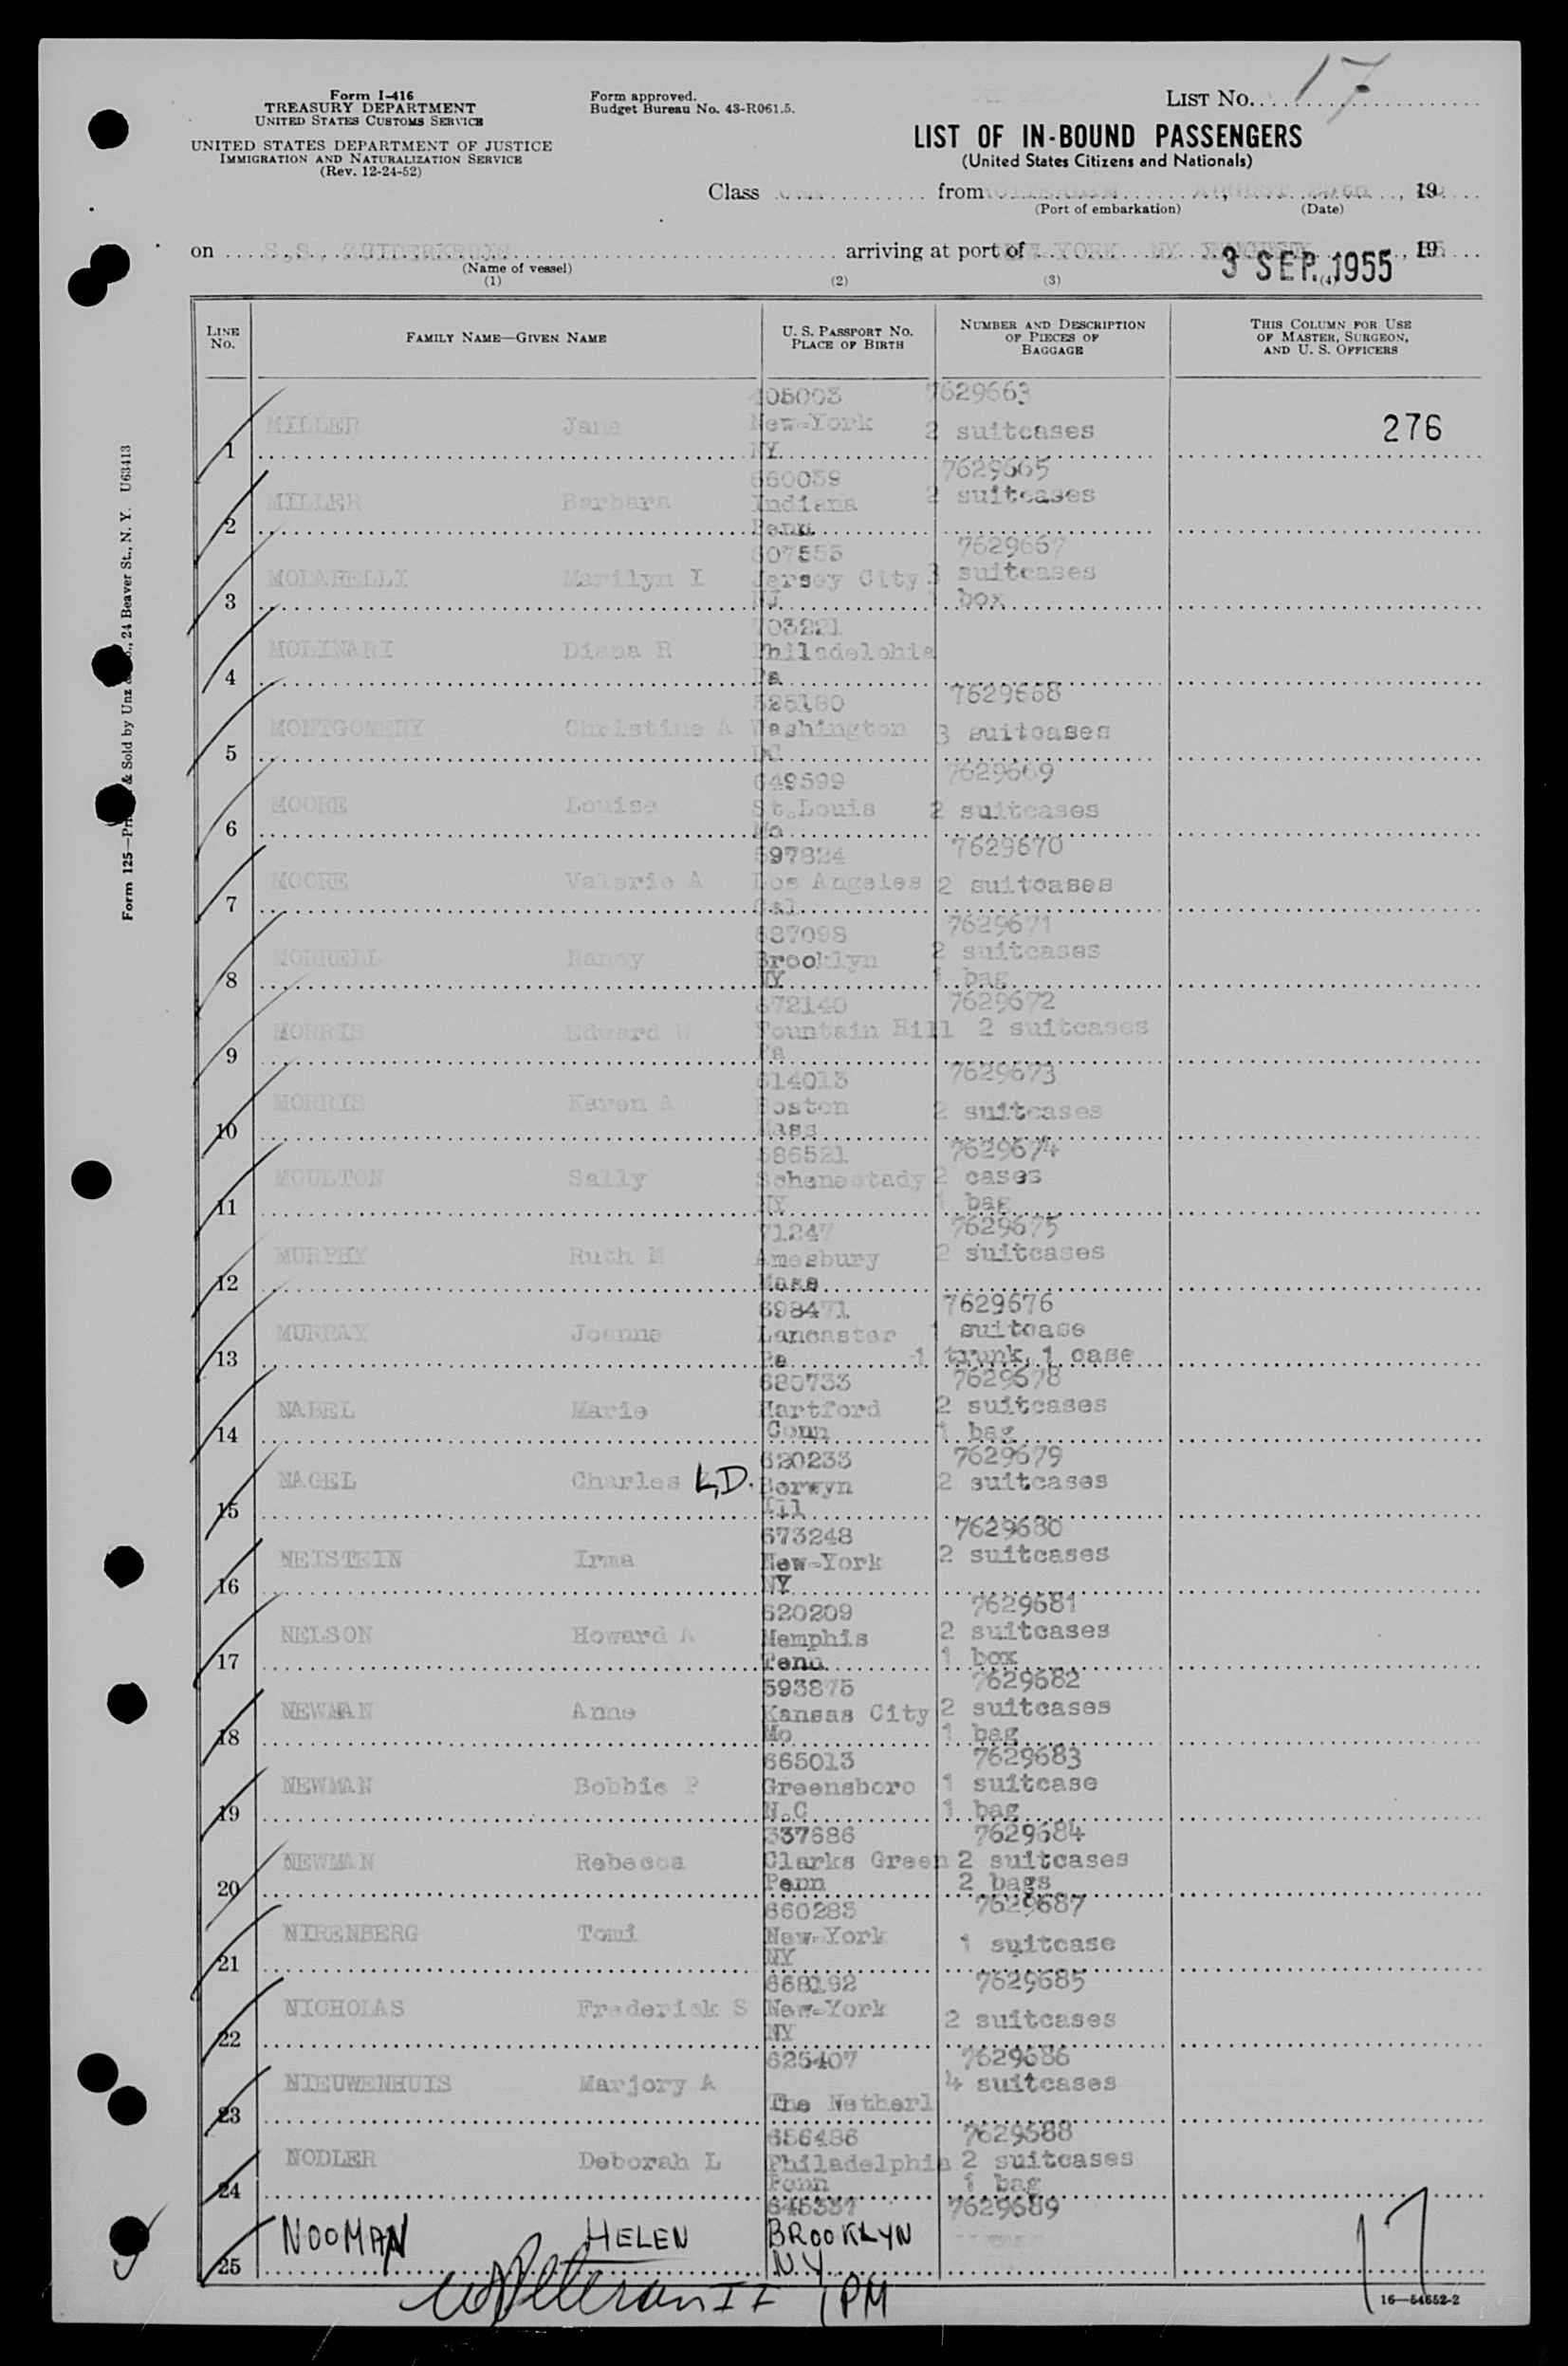 LIST NO. 17
Form I-416
TREASURY DEPARTMENT
UNITED STATES CUSTOMS SERVICE
UNITED STATES DEPARTMENT OF JUSTICE
IMMIGRATION AND NATURALIZATION SERVICE
(Rev. 12-24-52)
Form approved.
Budget Bureau No. 43-R061.5.
LIST OF IN-BOUND PASSENGERS
(United States Citizens and Nationals)
Class from AUGUST , 19
(Port of embarkation) (Date)
on S.S. ZUIDERKRUIS arriving at port of NEW YORK NY , 19
3 SEP. 1955
(Name of vessel)
(1) (2) (3) (4)
LINE NO. FAMILY NAME—GIVEN NAME U. S. PASSPORT NO. PLACE OF BIRTH NUMBER AND DESCRIPTION OF PIECES OF BAGGAGE THIS COLUMN FOR USE OF MASTER, SURGEON, AND U. S. OFFICERS
405003 7629663
1 MILLER Jane New-York 2 suitcases 276
NY
660059 7629665
2 MILLER Barbara Indiana 2 suitcases
Penn
607555 7629667
3 MODARELLI Marilyn I Jersey City 3 suitcases
NJ box
703221
4 MOLINARI Diana R Philadelphia
Pa
525180 7629668
5 MONTGOMERY Christine A Washington 3 suitcases
DC
649599 7629669
6 MOORE Louise St.Louis 2 suitcases
Mo
597824 7629670
7 MOORE Valerie A Los Angeles 2 suitcases
Cal
687098 7629671
8 MORRELL Nancy Brooklyn 2 suitcases
NY 1 bag
672140 7629672
9 MORRIS Edward W Fountain Hill 2 suitcases
Pa
614013 7629673
10 MORRIS Karen A Boston 2 suitcases
Mass
586521 7629674
11 MOULTON Sally Schenectady 2 cases
NY 1 bag
71247 7629675
12 MURPHY Ruth M Amesbury 2 suitcases
Mass
698471 7629676
13 MURRAY Joanne Lancaster 1 suitcase
Pa 1 trunk, 1 case
680733 7629678
14 NABEL Marie Hartford 2 suitcases
Conn 1 bag
620233 7629679
15 NAGEL Charles L,D. Berwyn 2 suitcases
Ill
673248 7629680
16 NEISTEIN Irma New-York 2 suitcases
NY
620209 7629681
17 NELSON Howard A Memphis 2 suitcases
Tenn 1 box
593875 7629682
18 NEWMAN Anne Kansas City 2 suitcases
Mo 1 bag
665013 7629683
19 NEWMAN Bobbie P Greensboro 1 suitcase
N.C 1 bag
337686 7629684
20 NEWMAN Rebecca Clarks Green 2 suitcases
Penn 2 bags
660283 7629687
21 NIRENBERG Tomi New-York 1 suitcase
NY
668192 7629685
22 NICHOLAS Frederick S New-York 2 suitcases
NY
625407 7629686
23 NIEUWENHUIS Marjory A The Netherl 4 suitcases
656486 7629688
24 NODLER Deborah L Philadelphia 2 suitcases
Penn 1 bag
645337 7629689
25 NOOMAN HELEN BROOKLYN
N.Y.
17
PM
16—54652-2
Form 125— & Sold by Unz & Co., 24 Beaver St., N. Y. U63413